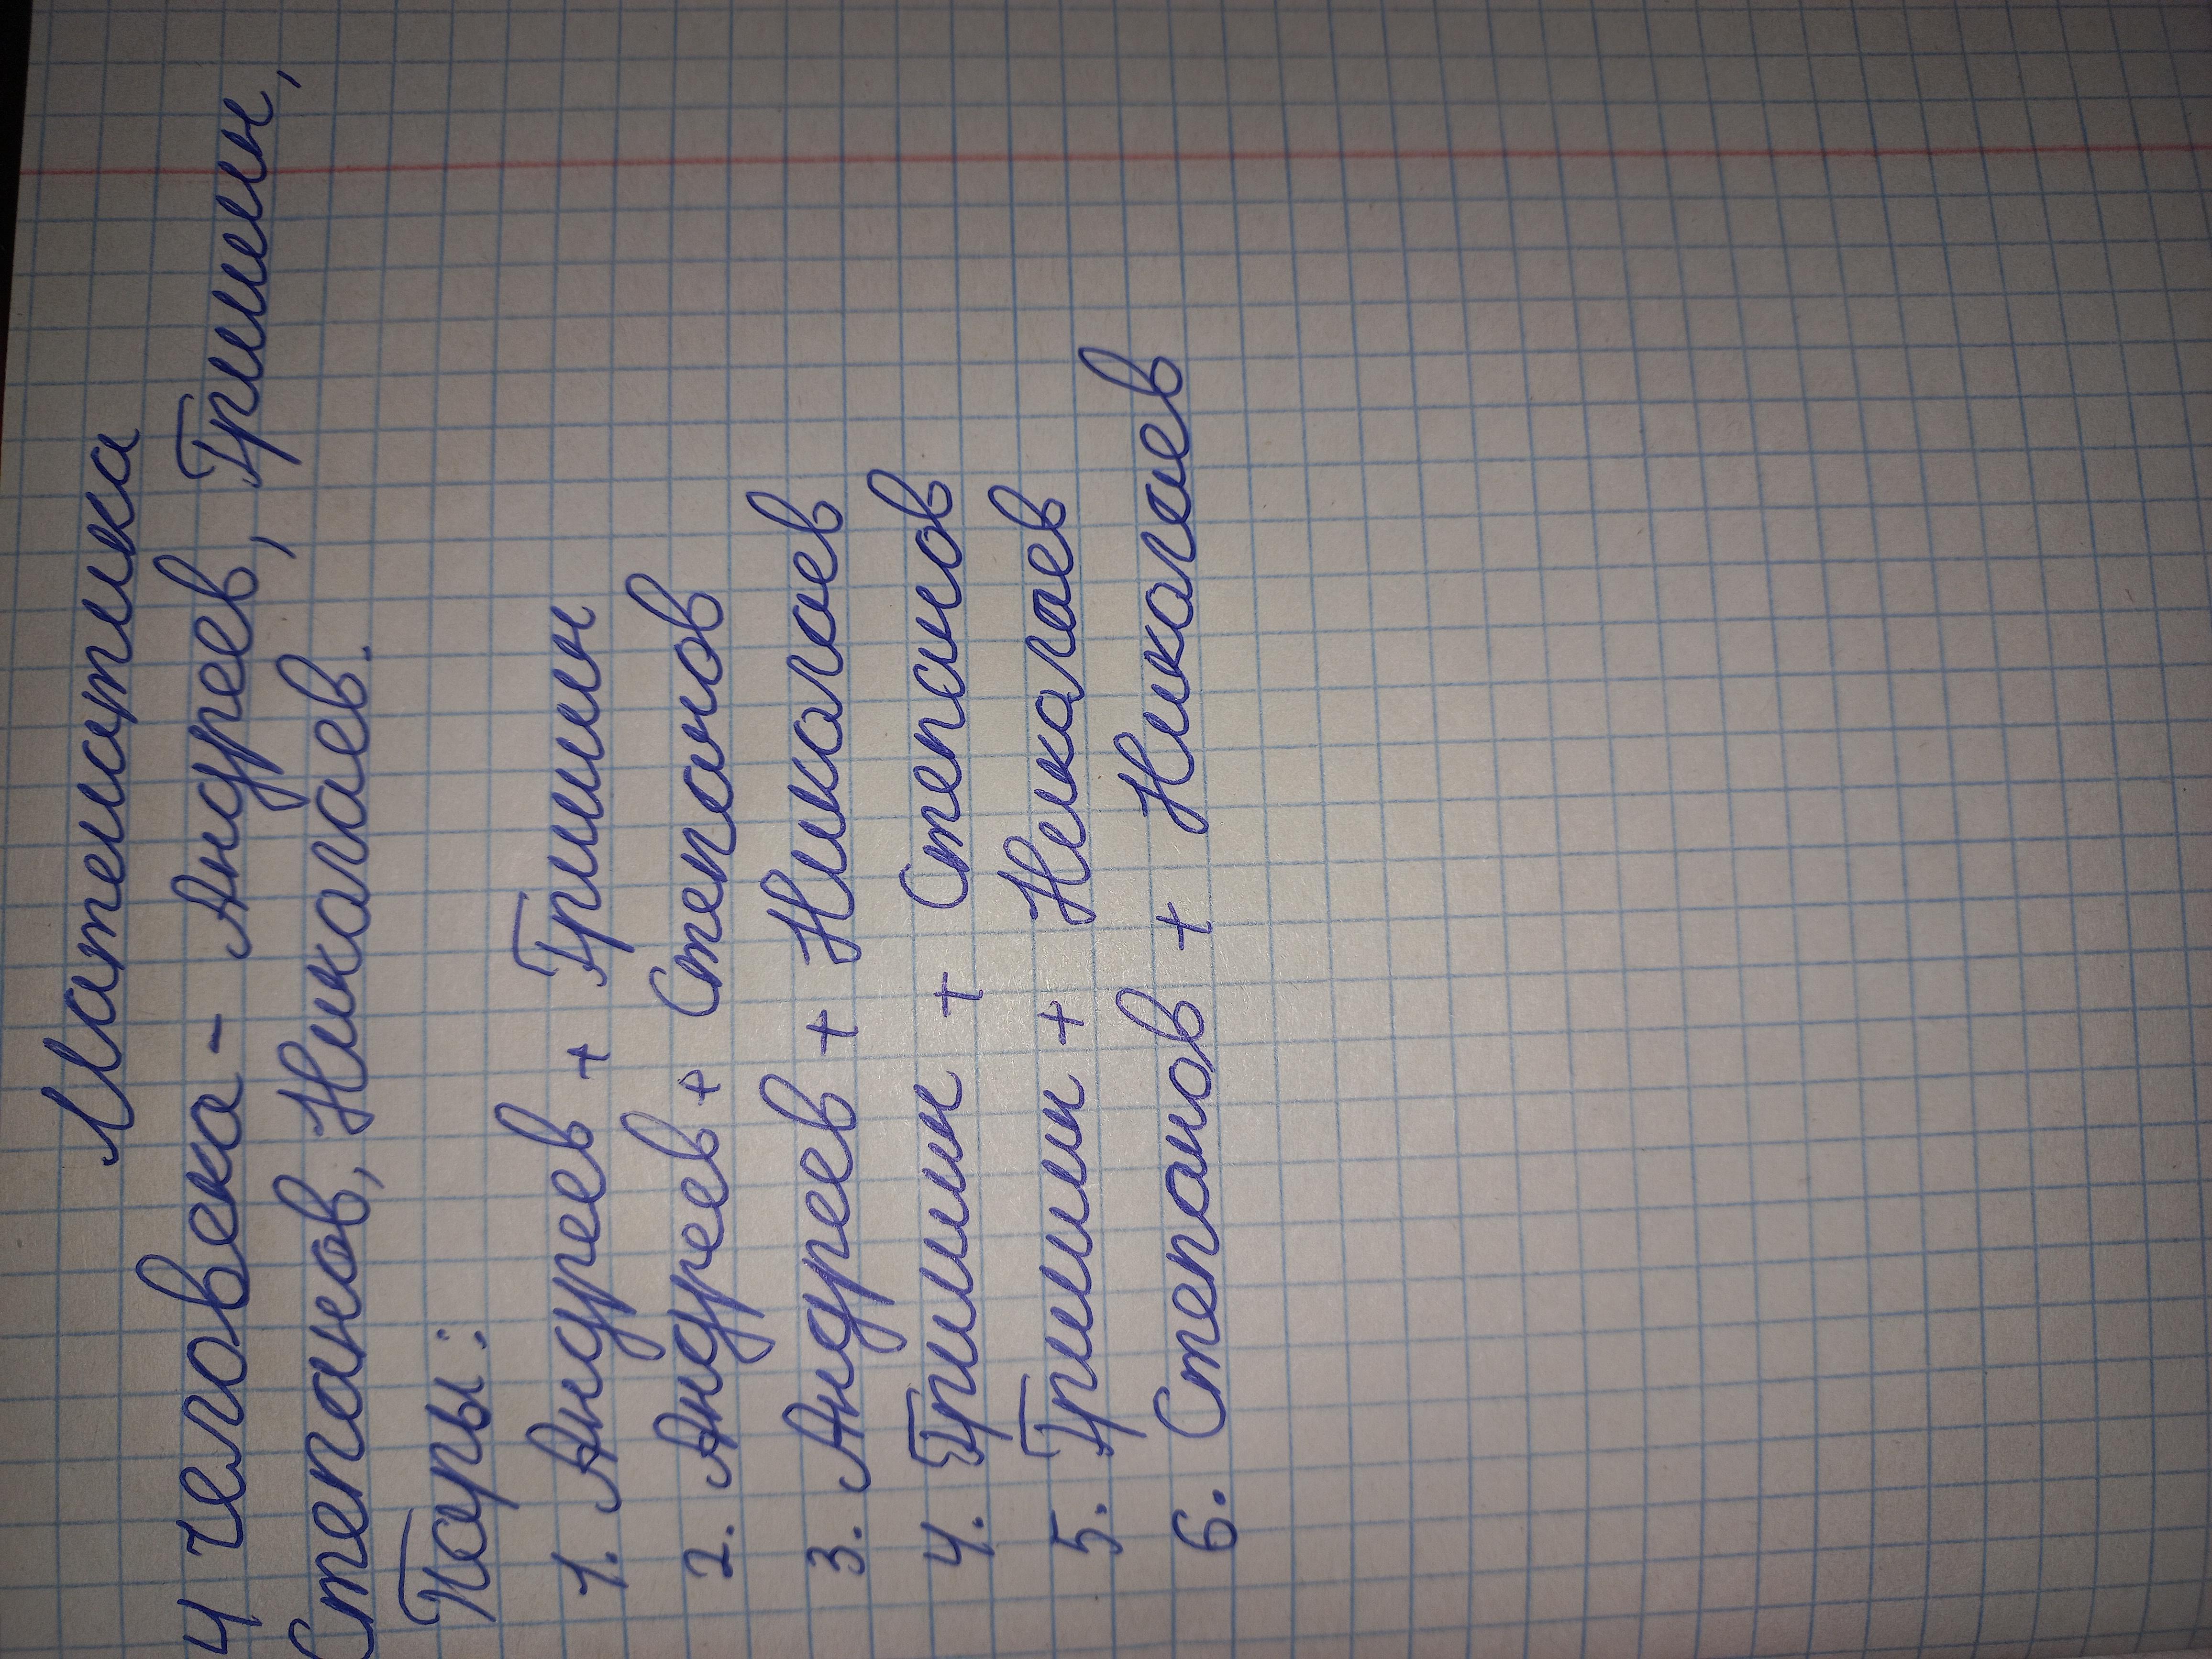 Математика
4 человека - Андреев, Гришин,
Степанов, Николаев.
Пары:
1. Андреев + Гришин
2. Андреев + Степанов
3. Андреев + Николаев
4. Гришин + Степанов
5. Гришин + Николаев
6. Степанов + Николаев